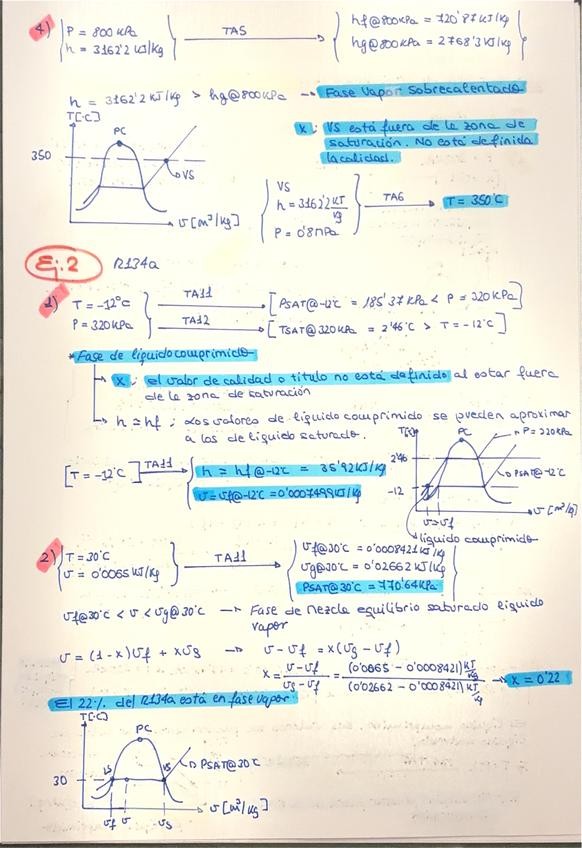 4) P = 800 kPa
h = 3162'2 kJ/kg
TA5
hf@800kPa = 720'87 kJ/kg
hg@800kPa = 2768'3 kJ/kg
h = 3162'2 kJ/kg > hg@800kPa → Fase vapor sobrecalentado
T[°C]
PC
350
VS
v [m³/kg]
x: VS está fuera de la zona de
saturación. No está definida
la calidad.
VS
h = 3162'2 kJ/kg
P = 0'8 MPa
TA6
T = 350°C
Ej.2 R134a
1) T = -12°C
P = 320 kPa
TA11
[PSAT@-12°C = 185'37 kPa < P = 320kPa]
TA12
[TSAT@320kPa = 2'46°C > T = -12°C]
* Fase de líquido comprimido
x: el valor de calidad o título no está definido al estar fuera
de la zona de saturación
h ≃ hf: Los valores de líquido comprimido se pueden aproximar
a los de líquido saturado.
[T = -12°C] TA11
h ≃ hf@-12°C = 35'92 kJ/kg
v = vf@-12°C = 0'0007499 kJ/kg
T[°C]
PC
P = 320kPa
2'46
PSAT@-12°C
-12
v≃vf
v [m³/kg]
líquido comprimido
2) T = 30°C
v = 0'0065 kJ/kg
TA11
vf@30°C = 0'0008421 kJ/kg
vg@30°C = 0'02662 kJ/kg
PSAT@30°C = 770'64 kPa
vf@30°C < v < vg@30°C → Fase de mezcla equilibrio saturado líquido
vapor
v = (1-x)vf + xvg → v - vf = x(vg - vf)
x = (v - vf)/(vg - vf) = (0'0065 - 0'0008421) kJ/kg / (0'02662 - 0'0008421) kJ/kg → x = 0'22
El 22% del R134a está en fase vapor
T[°C]
PC
PSAT@30°C
30
LS
VS
vf v vg
v [m³/kg]